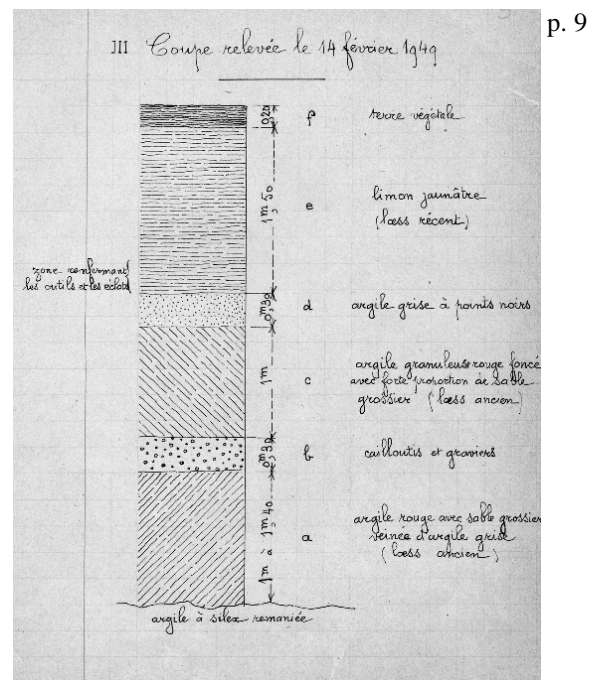 p. 9
III Coupe relevée le 14 février 1949
0,20
f
terre végétale
1m,50
e
limon jaunâtre
(lœss récent)
zone renfermant
les outils et les eclats
0m,30
d
argile grise à points noirs
1m
c
argile granuleuse rouge foncé
avec forte proportion de sable
grossier (lœss ancien)
0m,30
b
cailloutis et graviers
1m à 1m,40
a
argile rouge avec sable grossier
veinée d'argile grise
(lœss ancien)
argile à silex remaniée